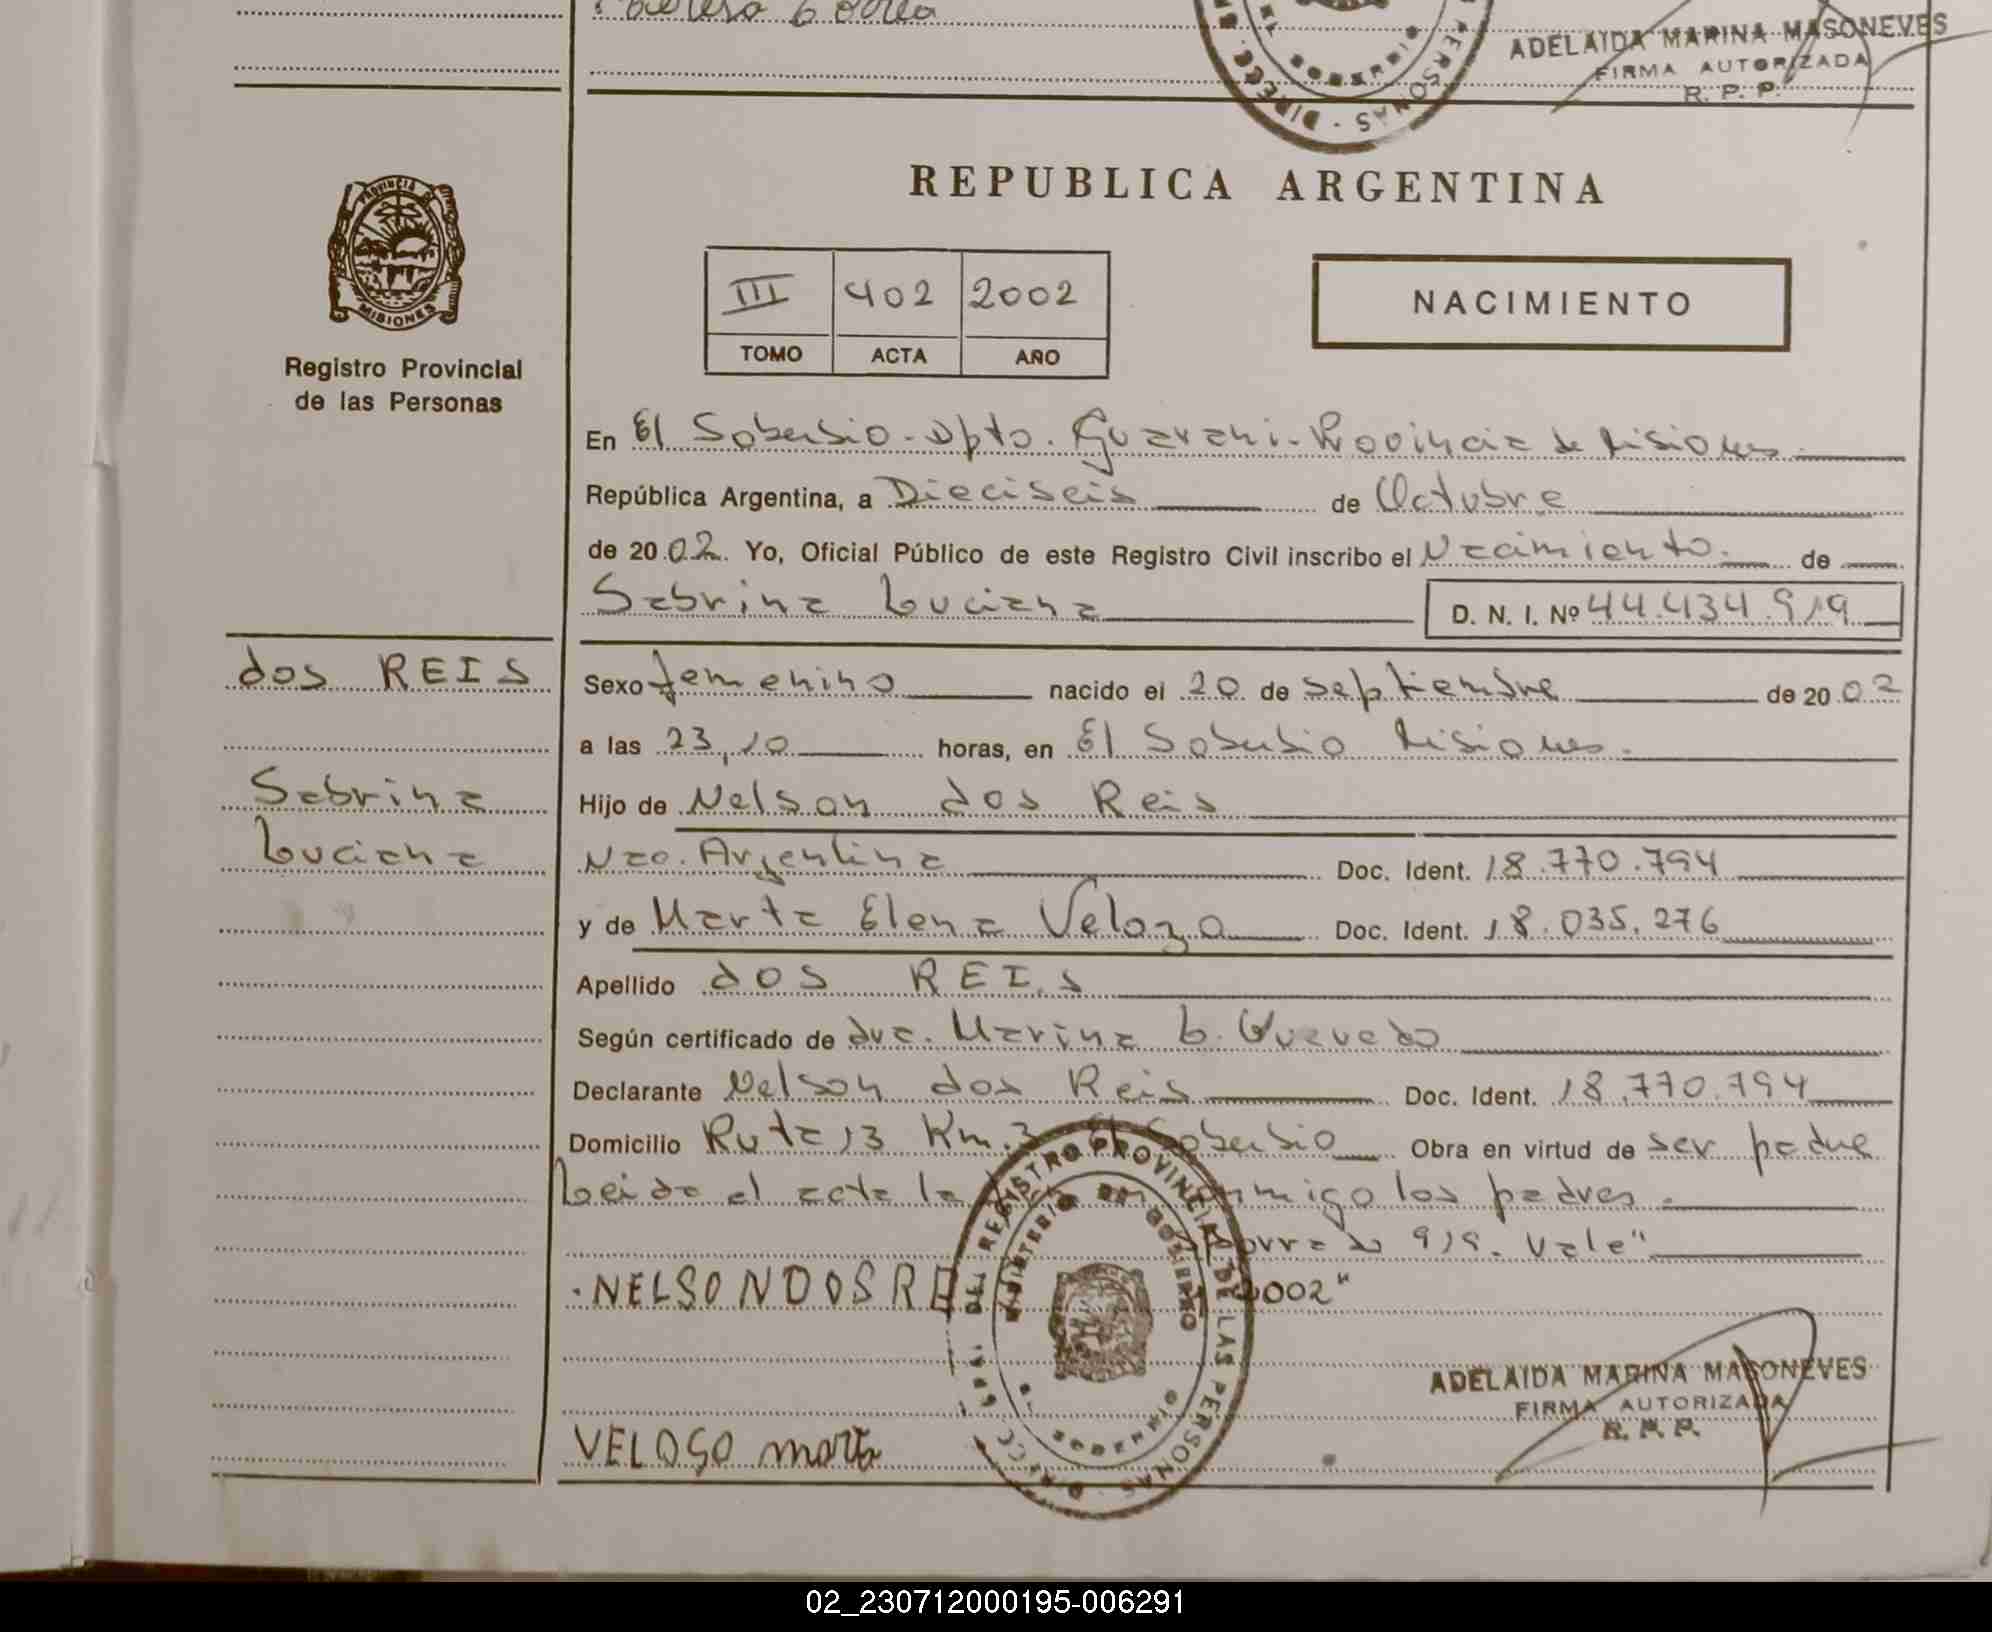 ADELAIDA MARINA MASONEVES
FIRMA AUTORIZADA
R. P. P.
PERSONAS - DIRECC.
REPUBLICA ARGENTINA
PROVINCIA
MISIONES
Registro Provincial
de las Personas
III 402 2002
TOMO ACTA AÑO
NACIMIENTO
En El Soberbio - Dpto. Guarani - Provincia de Misiones
República Argentina, a Dieciseis de Octubre
de 2002. Yo, Oficial Público de este Registro Civil inscribo el Nacimiento. de
Sabrina Luciana D. N. I. Nº 44.434.919
dos REIS
Sabrina
Luciana
Sexo femenino nacido el 20 de septiembre de 2002
a las 23,10 horas, en El Soberbio Misiones.
Hijo de Nelson dos Reis
Nac. Argentina Doc. Ident. 18.770.794
y de Marta Elena Velozo Doc. Ident. 18.035.276
Apellido dos REIS
Según certificado de dra. Marina L. Quevedo
Declarante Nelson dos Reis Doc. Ident. 18.770.794
Domicilio Ruta 13 Km.3 El Soberbio Obra en virtud de ser padre
Leida el acta la conmigo los padres.
919. Vale"
NELSON DOS RE 2002"
DIRECC. GRAL. DEL REGISTRO PROVINCIAL DE LAS PERSONAS
MINISTERIO DE GOBIERNO
ADELAIDA MARINA MASONEVES
FIRMA AUTORIZADA
R. P. P.
VELOSO marta
02_230712000195-006291